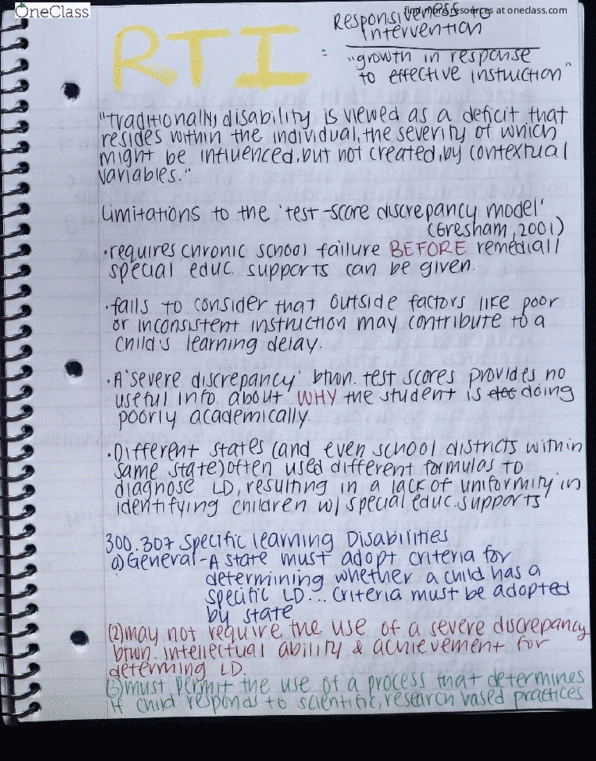 OneClass
find more resources at oneclass.com
RTI
=
Responsiveness to
Intervention
"growth in response
to effective instruction"
"traditionally, disability is viewed as a deficit that
resides within the individual, the severity of which
might be influenced, but not created, by contextual
variables."
Limitations to the 'test-score discrepancy model'
(Gresham, 2001)
·requires chronic school failure BEFORE remedial/
special educ. supports can be given.
·fails to consider that outside factors like poor
or inconsistent instruction may contribute to a
child's learning delay.
·A 'severe discrepancy' btwn. test scores provides no
useful info about WHY the student is doing
poorly academically.
·Different states (and even school districts within
same state) often used different formulas to
diagnose LD, resulting in a lack of uniformity in
identifying children w/ special educ. supports
300.307 Specific Learning Disabilities
a) General - A state must adopt criteria for
determining whether a child has a
specific LD... criteria must be adopted
by state
(2) may not require the use of a severe discrepancy
btwn. intellectual ability & achievement for
determing LD.
(3) must permit the use of a process that determines
if child responds to scientific, research based practices